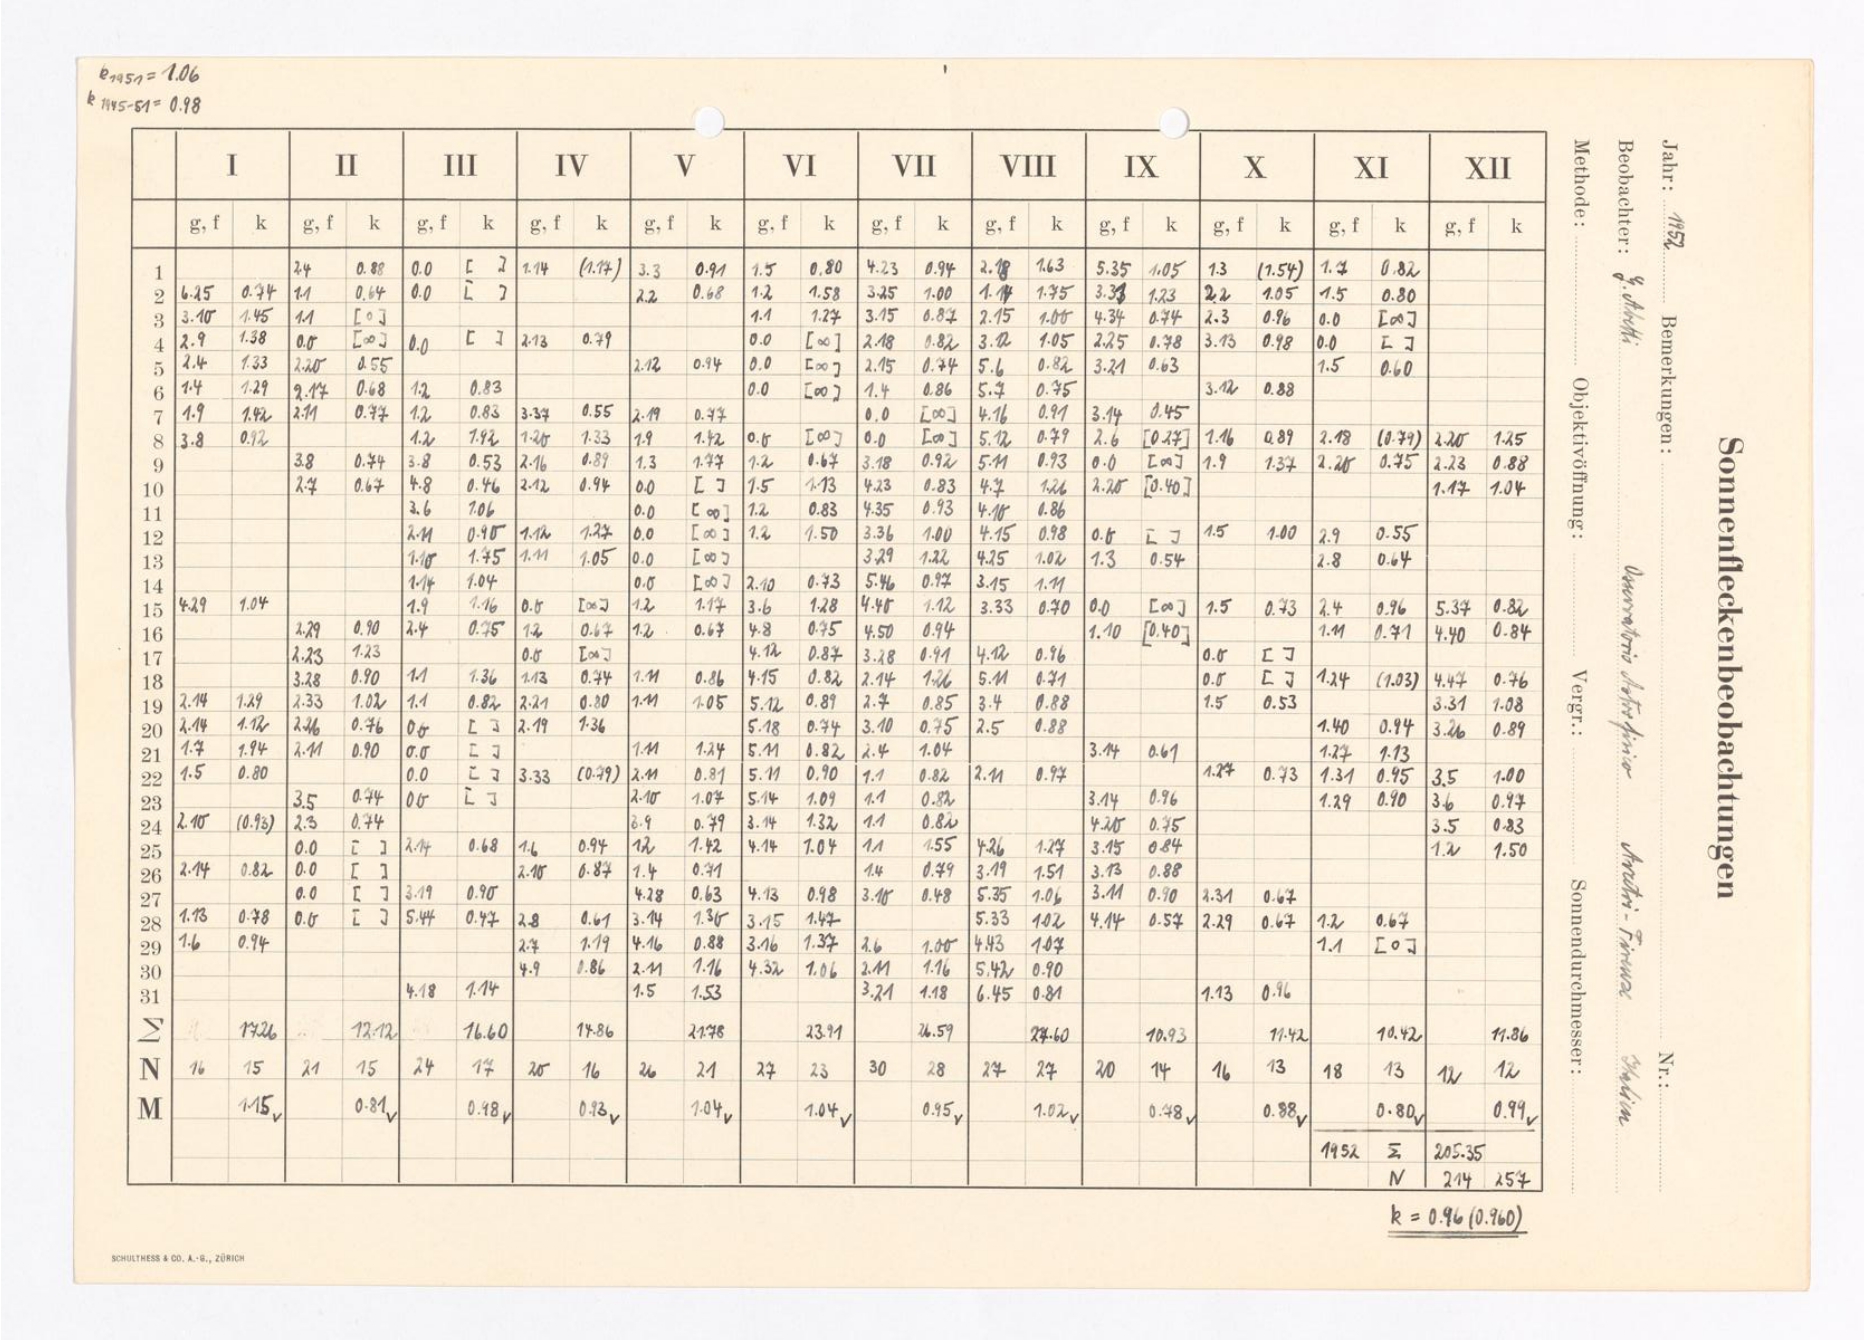 k 1951 = 1.06
k 1945-51 = 0.98
Sonnenfleckenbeobachtungen
Jahr: 1952 Bemerkungen: Nr.:
Beobachter: Osservatorio Astrofisico Arcetri - Firenze Italien
Methode: Objektivöffnung: Vergr.: Sonnendurchmesser:
I II III IV V VI VII VIII IX X XI XII
g, f k g, f k g, f k g, f k g, f k g, f k g, f k g, f k g, f k g, f k g, f k g, f k
1 2.4 0.88 0.0 [ ] 1.14 (1.17) 3.3 0.91 1.5 0.80 4.23 0.94 2.18 1.63 5.35 1.05 1.3 (1.54) 1.7 0.82
2 6.25 0.74 1.1 0.64 0.0 [ ] 2.2 0.68 1.2 1.58 3.25 1.00 1.14 1.75 3.31 1.23 2.2 1.05 1.5 0.80
3 3.10 1.45 1.1 [0] 1.1 1.27 3.15 0.87 2.15 1.00 4.34 0.74 2.3 0.96 0.0 [∞]
4 2.9 1.38 0.0 [∞] 0.0 [ ] 2.13 0.79 0.0 [∞] 2.18 0.82 3.12 1.05 2.25 0.78 3.13 0.98 0.0 [ ]
5 2.4 1.33 2.20 0.55 2.12 0.94 0.0 [∞] 2.15 0.74 5.6 0.82 3.21 0.63 1.5 0.60
6 1.4 1.29 2.17 0.68 1.2 0.83 0.0 [∞] 1.4 0.86 5.7 0.75 3.12 0.88
7 1.9 1.42 2.11 0.77 1.2 0.83 3.37 0.55 2.19 0.77 0.0 [∞] 4.16 0.91 3.14 0.45
8 3.8 0.92 1.2 1.92 1.20 1.33 1.9 1.42 0.0 [∞] 0.0 [∞] 5.12 0.79 2.6 [0.27] 1.16 0.89 2.18 (0.79) 2.20 1.25
9 3.8 0.74 3.8 0.53 2.16 0.89 1.3 1.77 1.2 0.67 3.18 0.92 5.11 0.93 0.0 [∞] 1.9 1.37 2.20 0.75 2.23 0.88
10 2.7 0.67 4.8 0.46 2.12 0.94 0.0 [ ] 1.5 1.13 4.23 0.83 4.7 1.26 2.20 [0.40] 1.17 1.04
11 3.6 1.06 0.0 [∞] 1.2 0.83 4.35 0.93 4.10 0.86
12 2.11 0.90 1.12 1.27 0.0 [∞] 1.2 1.50 3.36 1.00 4.15 0.98 0.0 [ ] 1.5 1.00 2.9 0.55
13 1.10 1.75 1.11 1.05 0.0 [∞] 3.29 1.22 4.25 1.02 1.3 0.54 2.8 0.64
14 1.14 1.04 0.0 [∞] 2.10 0.73 5.46 0.97 3.15 1.11
15 4.29 1.04 1.9 1.16 0.0 [∞] 1.2 1.17 3.6 1.28 4.40 1.12 3.33 0.70 0.0 [∞] 1.5 0.73 2.4 0.96 5.37 0.82
16 2.29 0.90 2.4 0.75 1.2 0.67 1.2 0.67 4.8 0.75 4.50 0.94 1.10 [0.40] 1.11 0.71 4.40 0.84
17 2.23 1.23 0.0 [∞] 4.12 0.87 3.28 0.91 4.12 0.96 0.0 [ ]
18 3.28 0.90 1.1 1.36 1.13 0.74 1.11 0.86 4.15 0.82 2.14 1.26 5.11 0.71 0.0 [ ] 1.24 (1.03) 4.47 0.76
19 2.14 1.29 2.33 1.02 1.1 0.82 2.21 0.80 1.11 1.05 5.12 0.89 2.7 0.85 3.4 0.88 1.5 0.53 3.31 1.08
20 2.14 1.12 2.26 0.76 0.0 [ ] 2.19 1.36 5.18 0.74 3.10 0.75 2.5 0.88 1.40 0.94 3.26 0.89
21 1.7 1.94 2.11 0.90 0.0 [ ] 1.11 1.24 5.11 0.82 2.4 1.04 3.14 0.61 1.27 1.13
22 1.5 0.80 0.0 [ ] 3.33 (0.79) 2.11 0.81 5.11 0.90 1.1 0.82 2.11 0.97 1.27 0.73 1.31 0.95 3.5 1.00
23 3.5 0.74 0.0 [ ] 2.10 1.07 5.14 1.09 1.1 0.82 3.14 0.96 1.29 0.90 3.6 0.97
24 2.10 (0.93) 2.3 0.74 3.9 0.79 3.14 1.32 1.1 0.82 4.20 0.75 3.5 0.83
25 0.0 [ ] 2.14 0.68 1.6 0.94 1.2 1.42 4.14 1.04 1.1 1.55 4.26 1.27 3.15 0.84 1.2 1.50
26 2.14 0.82 0.0 [ ] 2.10 0.87 1.4 0.71 1.4 0.79 3.19 1.51 3.13 0.88
27 0.0 [ ] 3.19 0.90 4.28 0.63 4.13 0.98 3.10 0.48 5.35 1.06 3.11 0.90 2.31 0.67
28 1.13 0.78 0.0 [ ] 5.44 0.47 2.8 0.61 3.14 1.30 3.15 1.47 5.33 1.02 4.14 0.57 2.29 0.67 1.2 0.67
29 1.6 0.94 2.7 1.19 4.16 0.88 3.16 1.37 2.6 1.00 4.43 1.07 1.1 [0]
30 4.9 0.86 2.11 1.16 4.32 1.06 2.11 1.16 5.42 0.90
31 4.18 1.14 1.5 1.53 3.21 1.18 6.45 0.81 1.13 0.96
Σ 17.26 12.12 16.60 14.86 21.78 23.91 26.59 27.60 10.93 11.42 10.42 11.86
N 16 15 21 15 24 17 20 16 26 21 27 23 30 28 27 27 20 14 16 13 18 13 12 12
M 1.15 0.81 0.98 0.93 1.04 1.04 0.95 1.02 0.78 0.88 0.80 0.99
1952 Σ 205.35
N 214 257
k = 0.96 (0.960)
SCHULTHESS & CO. A.-G., ZÜRICH